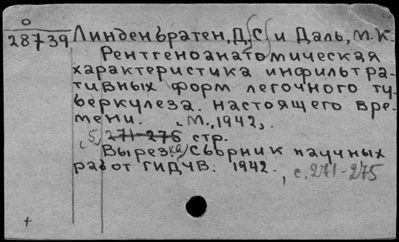 28739 Линденбратен, Д.С. и Даль, М.К.
Рентгеноанатомическая
характеристика инфильтра-
тивных форм легочного ту-
беркулеза настоящего вре-
мени. М., 1942,
5, 271-275 стр.
Вырезка, Сборник научных
работ ГИДУВ. 1942. , с. 271-275